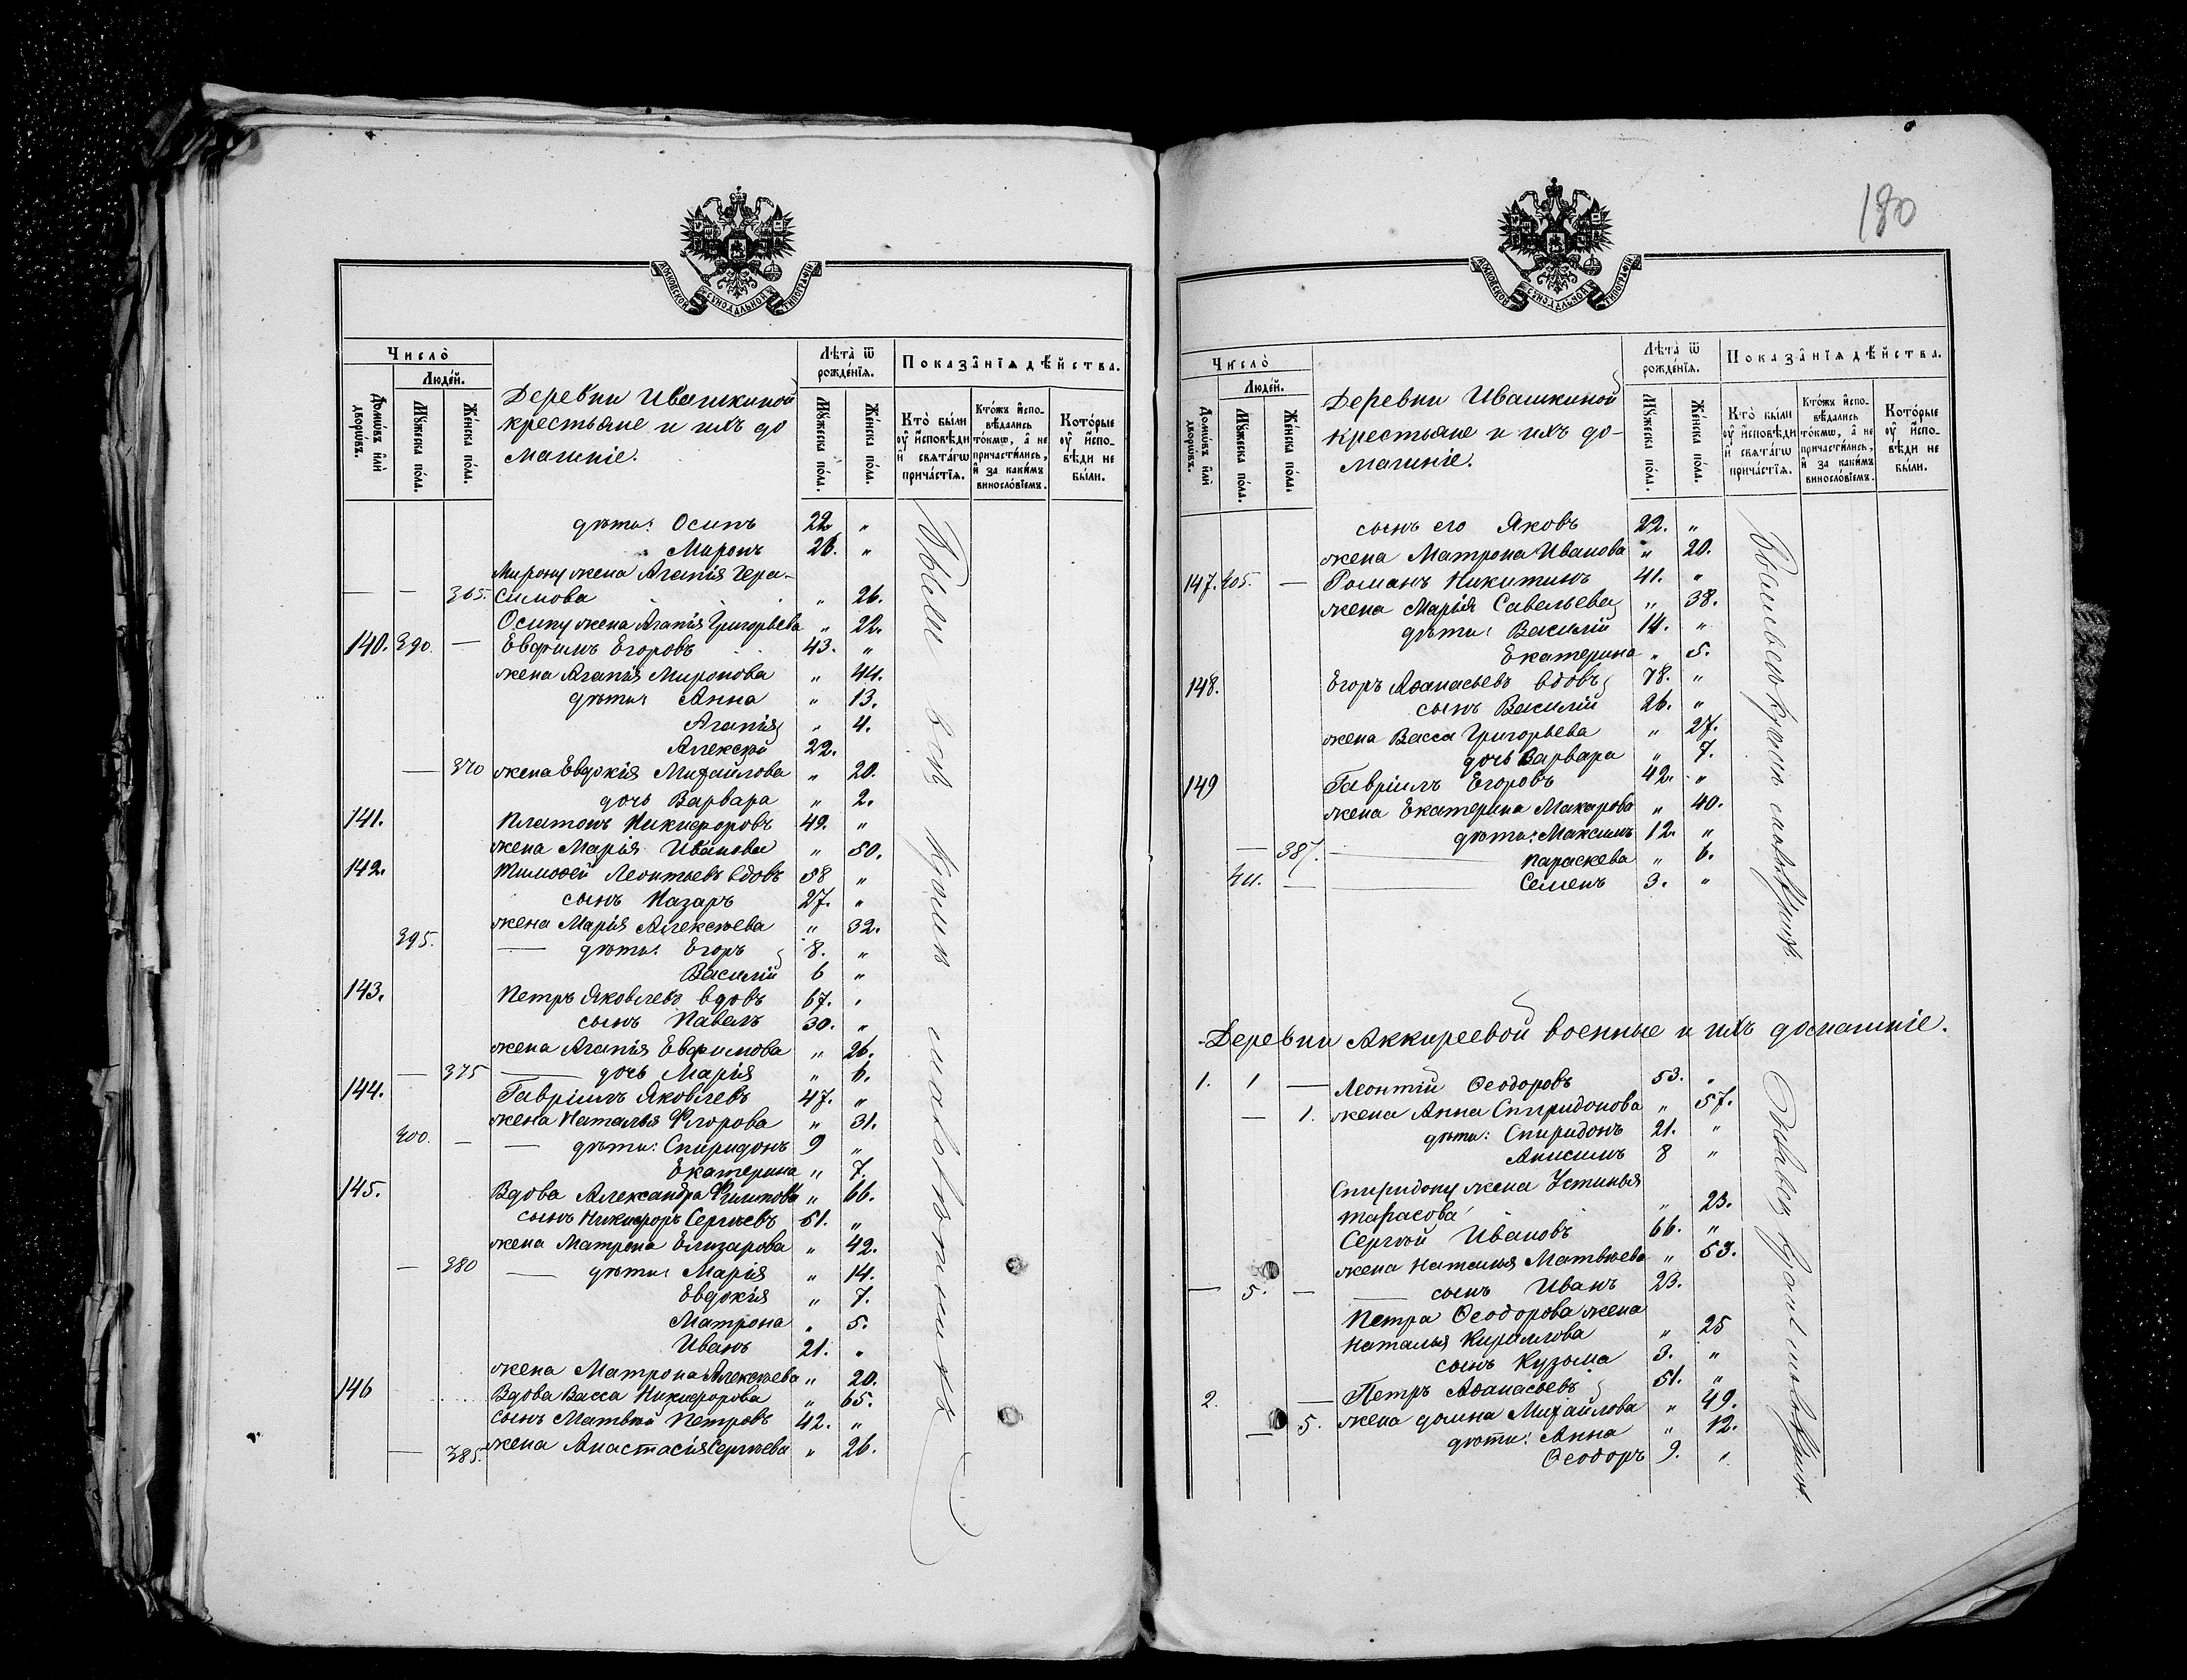 МОСКОВСКОЙ СѴНОДАЛЬНОЙ ТИПОГРАФІИ
Число̀
Людéй.
Домѡ́въ и҆лѝ дворѡ́въ.
Мꙋ́жеска по́ла.
Же́нска по́ла.
Деревни Ивашкиной
крестьяне и ихъ до
машніе.
Лѣта̀ ѿ рожде́нїѧ.
Мꙋ́жеска по́ла.
Же́нска по́ла.
Показа̑нїѧ дѣ́йства.
Кто̀ бы́ли оу҆ и҆сповѣди и҆ свѧта́гѡ прича́стїѧ.
Кто́жъ и҆сповѣдались то́кмѡ, а҆ не причасти́лись, и҆ за каки́мъ винословїемъ.
Кото́рые оу҆ и҆сповѣди не бы́ли.
дѣти: Осипъ 22 "
Миронъ 26. "
Мирону жена Агапія Гера-
— — 365. симова " 26.
Осипу жена Агапія Григорьева " 22.
140. 390. — Евфимъ Егоровъ 43. "
жена Агапія Миронова " 44.
дѣти Анна " 13.
Агапія " 4.
Алексѣй 22.
— 370 жена Евдокія Михайлова " 20.
дочь Варвара " 2.
141. Платонъ Никифоровъ 49. "
жена Марія Иванова " 50.
142. Тимофей Леонтьевъ вдовъ 58 "
сынъ Назаръ 27. "
жена Марія Алексѣева " 32.
395. — дѣти: Егоръ 8. "
Василій 6 "
143. Петръ Яковлевъ вдовъ 67. "
сынъ Павелъ 30. "
жена Агапія Евфимова " 26.
— 375 — дочь Марія " 6.
144. Гавріилъ Яковлевъ 47. "
жена Наталья Флорова " 31.
400. — — дѣти: Спиридонъ 9 "
Екатерина " 7.
145. Вдова Александра Филипова " 66.
сынъ Никифоръ Сергѣевъ 51. "
жена Матрона Елизарова " 42.
— 380 — дѣти: Марія " 14.
Евдокія " 7.
Матрона " 5.
Иванъ 21. "
жена Матрона Алексѣева " 20.
146 Вдова Васса Никифорова " 65.
сынъ Матвѣй Петровъ 42. "
— 385. жена Анастасія Сергѣева " 26.
Были всѣ кромѣ малолѣтнихъ
180
МОСКОВСКОЙ СѴНОДАЛЬНОЙ ТИПОГРАФІИ
Число̀
Людéй.
Домѡ́въ и҆лѝ дворѡ́въ.
Мꙋ́жеска по́ла.
Же́нска по́ла.
Деревни Ивашкиной
крестьяне и ихъ до-
машніе.
Лѣта̀ ѿ рожде́нїѧ.
Мꙋ́жеска по́ла.
Же́нска по́ла.
Показа̑нїѧ дѣ́йства.
Кто̀ бы́ли оу҆ и҆сповѣди и҆ свѧта́гѡ прича́стїѧ.
Кто́жъ и҆сповѣдались то́кмѡ, а҆ не причасти́лись, и҆ за каки́мъ винословїемъ.
Кото́рые оу҆ и҆сповѣди не бы́ли.
сынъ его Яковъ 22. "
жена Матрона Иванова " 20.
147. 405. — Романъ Никитинъ 41. "
жена Марія Савельева " 38.
дѣти: Василій 14. "
Екатерина " 5.
148. Егоръ Аѳанасьевъ вдовъ 78. "
сынъ Василій 26. "
жена Васса Григорьева " 27.
дочь Варвара " 7.
149 Гавріилъ Егоровъ 42. "
жена Екатерина Макарова " 40.
дѣти: Максимъ 12. "
— 387. — Параскева " 6.
411. — — Семенъ 3. "
кромѣ
Деревни Аккиреевой военные и ихъ домашніе.
1. 1 — Леонтій Ѳеодоровъ 53. "
— 1. жена Анна Спиридонова " 57.
дѣти: Спиридонъ 21. "
Анисимъ 8 "
Спиридону жена Устинья
Тарасова " 23.
Сергѣй Ивановъ 66. "
жена Наталья Матвѣева " 53.
— 5. — — сынъ Иванъ 23.
Петра Ѳеодорова жена
Наталья Кириллова " 25
сынъ Кузьма 3. "
2. — Петръ Аѳанасьевъ 51. "
— 5. жена Домна Михайлова " 49.
дѣти: Анна " 12.
Ѳеодоръ 9. "